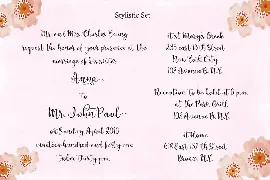 Stylistic Set
Mr. and Mrs. Charles Young
request the honor of your presence at the
marriage of his sister
Anna
to
Mr. John Paul
on Sunday April 2015
nineteen hundred and forty one
Twelve Thirty p.m.
At St Marys Church
235 east 13th Street
New York City
103 Avenue B. N.Y.
Reception To be held at 6 p.m.
at the Park Grill
103 Avenue B. N.Y.
at Home
678 East 137 th Street
Bronx, N.Y.